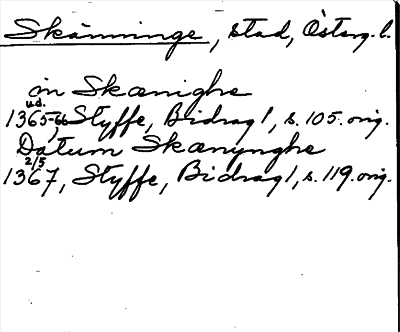 Skänninge, stad, Österg. l.
in Skænighe
u.d.
1365-66, Styffe, Bidrag 1, s. 105. orig.
Datum Skænynghe
2/5
1367, Styffe, Bidrag 1, s. 119. orig.